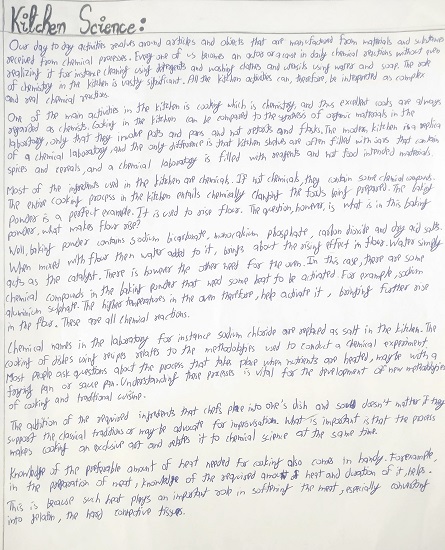 Kitchen Science:
Our day to day activities revolves around articles and objects that are manufactured from materials and substances
received from chemical processes. Every one of us becomes an actor or a carie in daily chemical reactions without even
realizing it for instance cleaning using detergents and washing clothes and utensils using water and soap. The role
of chemistry in the kitchen is vastly significant. All the kitchen activities can, therefore, be interpreted as complex
and real chemical reactions.
One of the main activities in the kitchen is cooking which is chemistry, and thus excellent cooks are always
regarded as chemists. Cooking in the kitchen can be compared to the synthesis of organic materials in the
laboratory, only that they involve pots and pans and not retorts and flasks. The modern kitchen is a replica
of a chemical laboratory, and the only difference is that kitchen shelves are often filled with jars that contain
spices and cereals, and a chemical laboratory is filled with reagents and not food intended materials.
Most of the ingredients used in the kitchen are chemicals. If not chemicals, they contain some chemical compounds.
The entire cooking process in the kitchen entails chemically changing the foods being prepared. The baking
powder is a perfect example. It is used to raise flours. The question, however, is what is in this baking
powder, what makes flour rise?
Well, baking powder contains sodium bicarbonate, monocalcium phosphate, carbon dioxide and dry acid salts.
When mixed with flour then water added to it, brings about the rising effect in flour. Water simply
acts as the catalyst. There is however the other need for the oven. In this case, there are some
chemical compounds in the baking powder that need some heat to be activated. For example, sodium
aluminium sulphate. The higher temperatures in the oven therefore, help activate it, bringing further rise
in the flour. These are all chemical reactions.
Chemical names in the laboratory for instance sodium chloride are replaced as salt in the kitchen. The
cooking of dishes using recipes relates to the methodologies used to conduct a chemical experiment.
Most people ask questions about the process that take place when nutrients are heated, maybe with a
frying pan or sauce pan. Understanding these processes is vital for the development of new methodologies
of cooking and traditional cuisine.
The addition of the required ingredients that chefs place into one's dish and soul doesn't matter if they
support the classical traditions or maybe advocate for improvisation. What is important is that the process
makes cooking an exclusive art and relates it to chemical science at the same time.
Knowledge of the preferable amount of heat needed for cooking also comes in handy. For example,
in the preparation of meat, knowledge of the required amount of heat and duration of it, helps.
This is because such heat plays an important role in softening the meat, especially converting
into gelatin, the hard connective tissues.